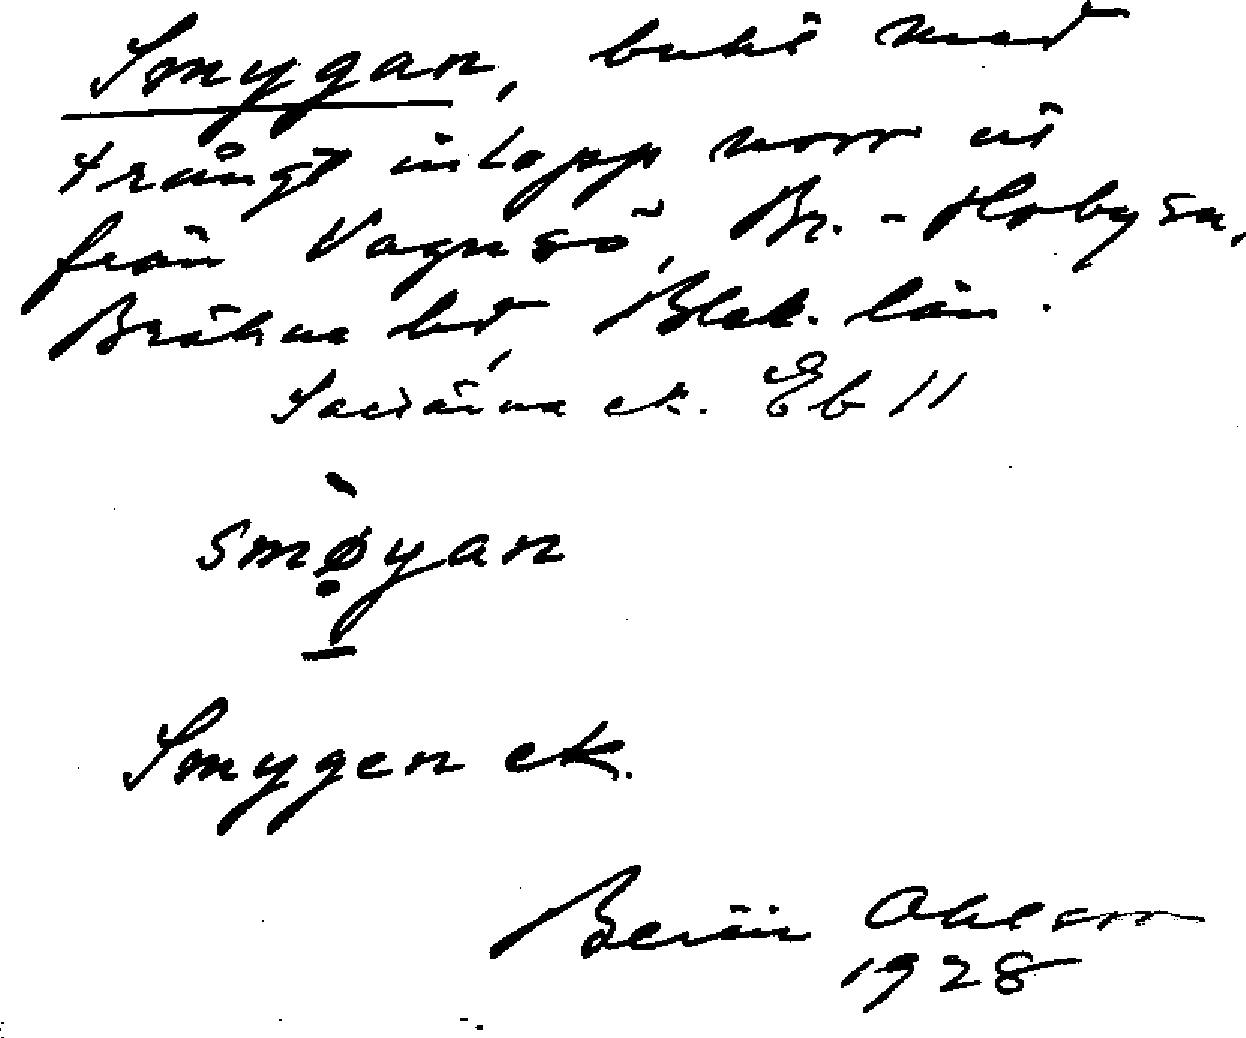 Smygan, bukt med
trångt inlopp norr ut
från Vagnsö, Br.-Hobysn,
Bräkne hd, Blek. län.
ek. Eb 11
smø̣̀yan
Smygen ek.
Ohlsson
1928